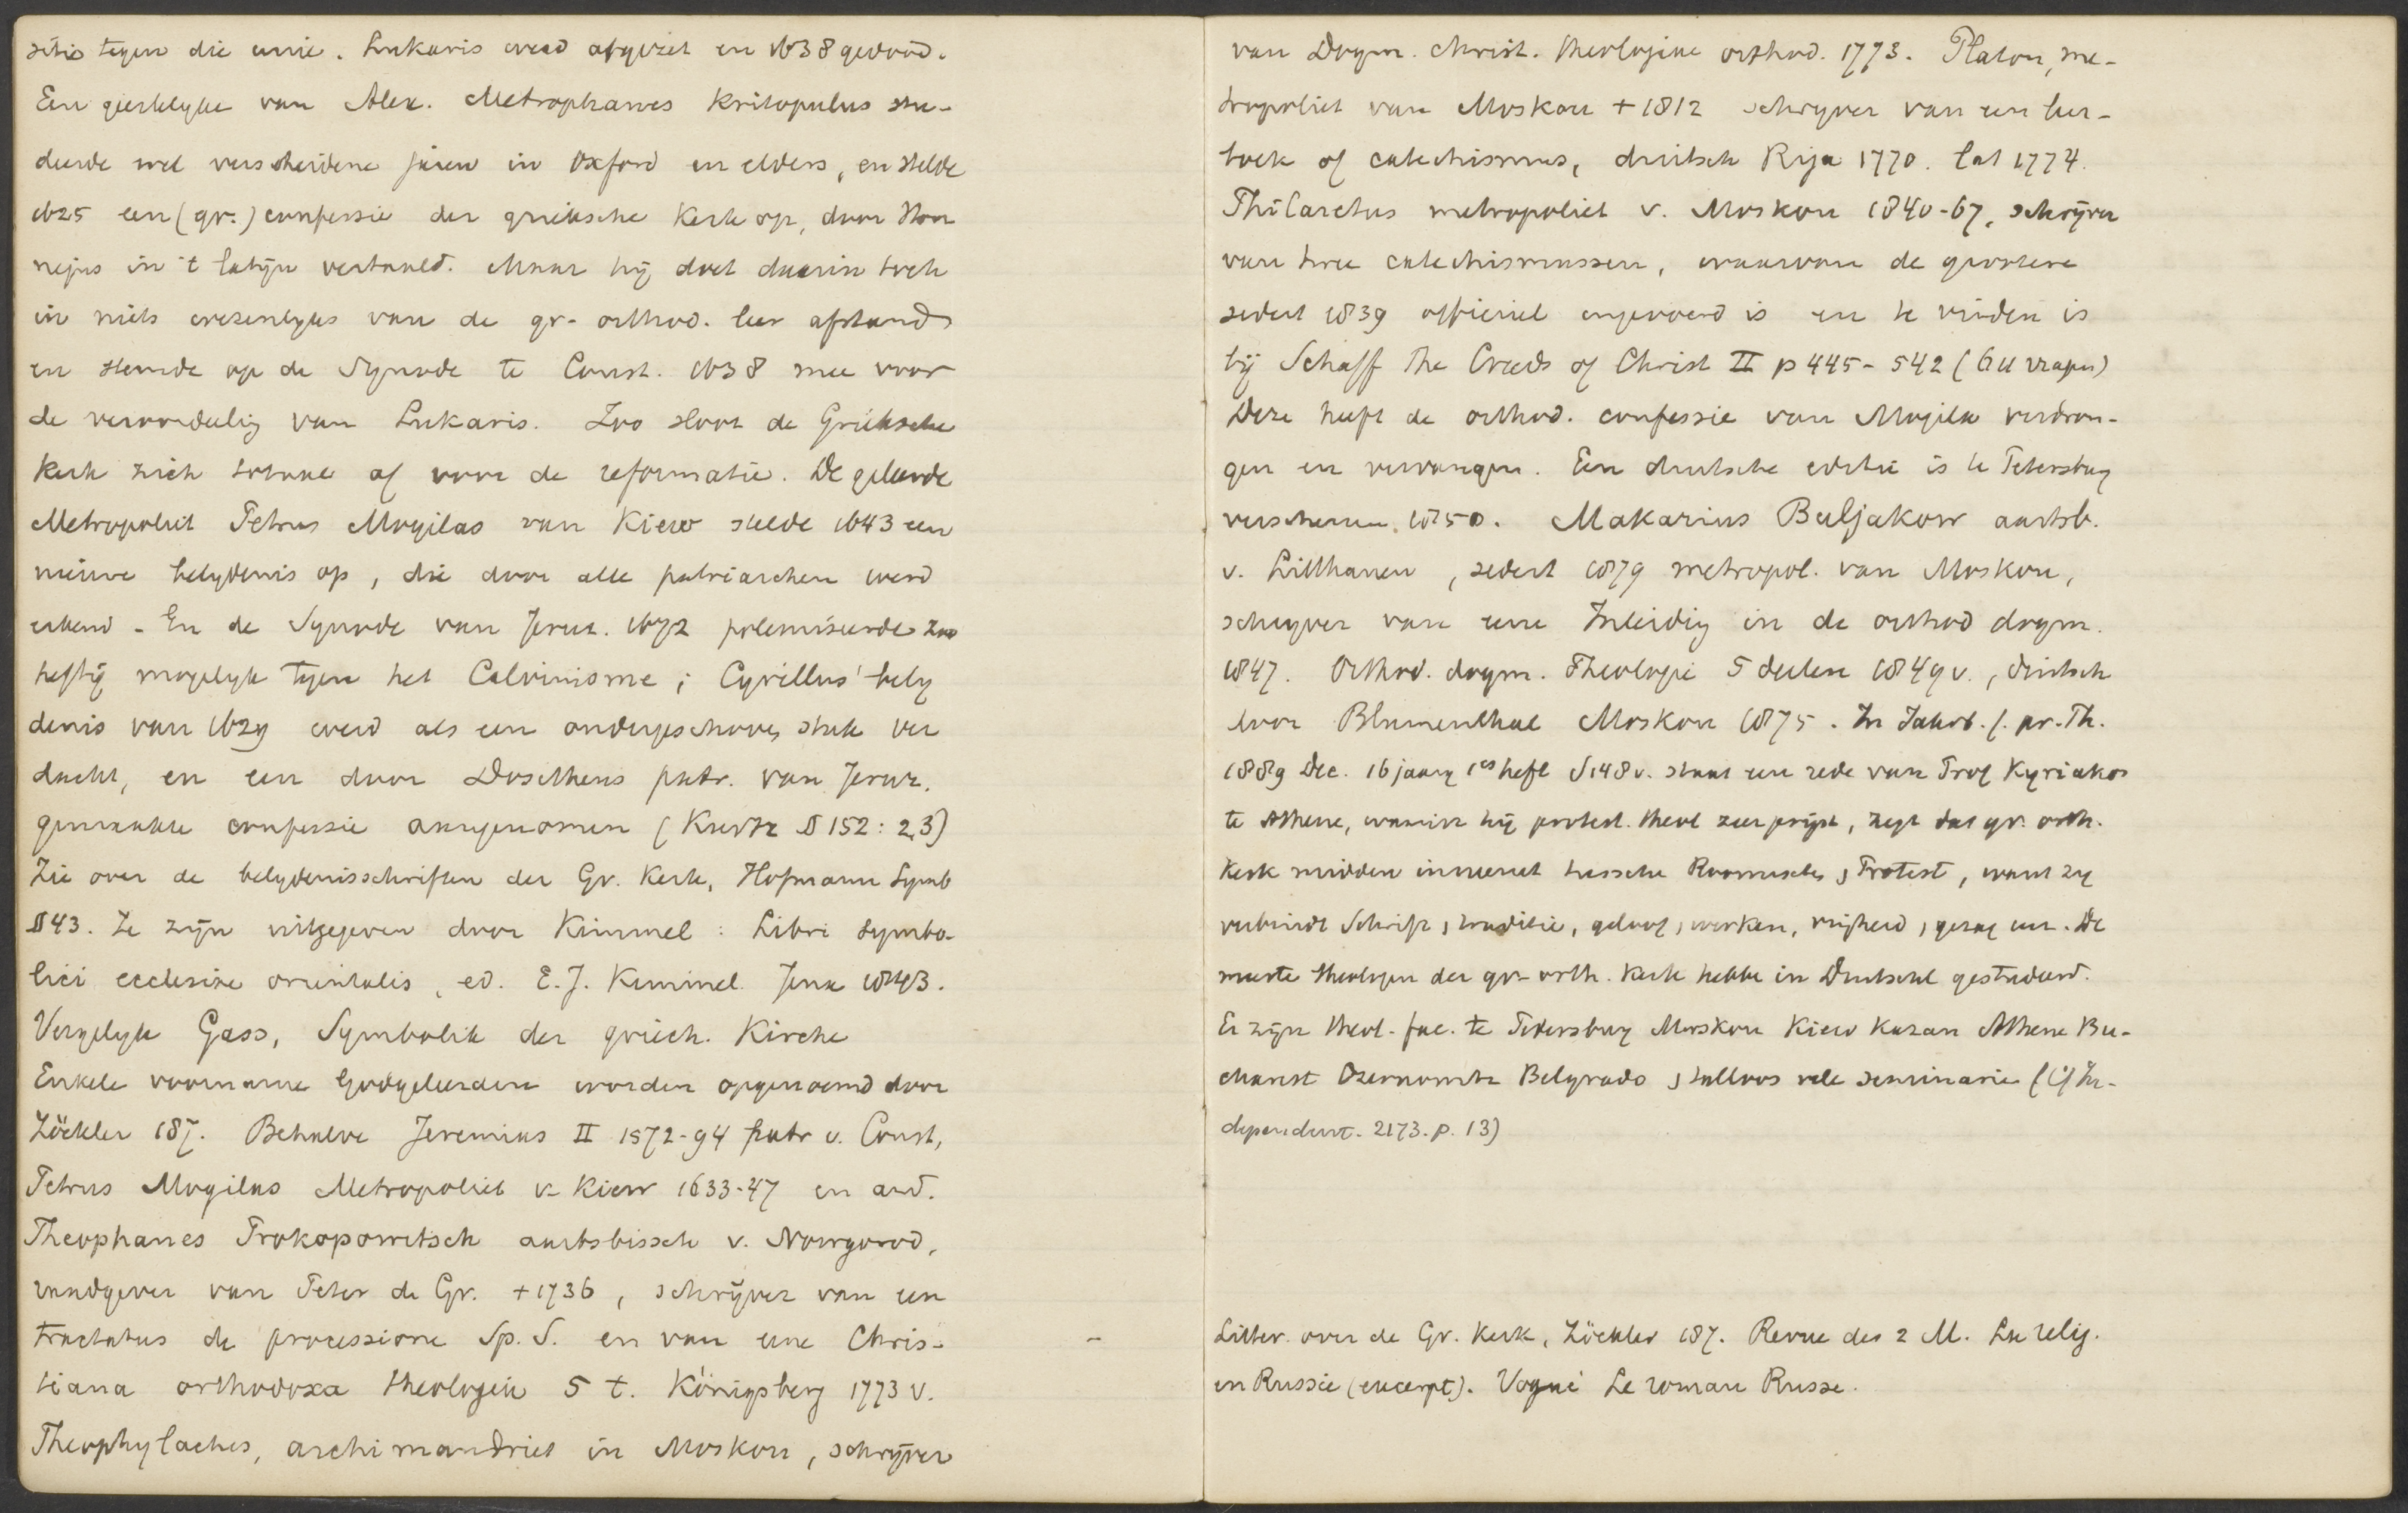 sitie tegen die unie. Lukaris werd afgezet en 1638 gedood.
Een geestelyke van Alex. Metrophanes Kritopulus stu-
deerde wel verscheidene jaren in Oxford en elders, en stelde
1625 een (gr.) confessie der grieksche Kerk op, door Hor
nejus in 't latijn vertaald. Maar hij doet daarin toch
in niets wezenlyks van de gr. orthod. leer afstand
en stemde op de Synode te Const. 1638 mee voor
de veroordeelig van Lukaris. Zoo sloot de Grieksche
Kerk zich totaal af voor de reformatie. De geleerde
Metropoliet Petrus Mogilas van Kiew stelde 1643 een
nieuwe belydenis op, die door alle patriarchen werd
erkend - En de Synode van Jeruz. 1672 polemiseerde zoo
heftig mogelyk tegen het Calvinisme; Cyrillus' bely
denis van 1629 werd als een ondergeschoven stuk ver
dacht, en een door Dositheus patr. van Jeruz.
gemaakte confessie aangenomen (Kurtz § 152: 2,3)
Zie over de belydenisschriften der Gr. Kerk, Hofmann Symb
§ 43. Ze zijn uitgegeven door Kimmel: Libri symbo-
lici ecclesiae orientalis, ed. E.J. Kimmel. Jena 1843.
Vergelyk Gass, Symbolik der griech. Kirche
Enkele voorname Godgeleerden worden opgenoemd door
Zöckler 187. Behalve Jeremias II 1572-94 patr v. Const,
Petrus Mogilas Metropoliet v. Kiew 1633-47 en and.
Theophanes Prokopowitsch aartsbissch v. Nowgorod,
raadgever van Peter de Gr. +1736, schrijver van een
tractatus de processione Sp. S. en van eene Chris-
tiana orthodoxa theologia 5 t. Königsberg 1773 v.
Theophylactus, archimandriet in Moskou, schrijver
van Dogm. Christ. theologiae orthod. 1773. Platon, me-
tropoliet van Moskou + 1812 schryver van een leer-
boek of catechismus, duitsch Riga 1770. lat 1774.
Philaretus metropoliet v. Moskou 1840-67, schrijver
van twee catechismussen, waarvan de grootere
sedert 1839 officieel ingevoerd is en te vinden is
bij Schaff The Creeds of Christ II p 445-542 (611 vragen)
Deze heeft de orthod. confessie van Mogila verdron-
gen en vervangen. Een duitsche editie is te Petersburg
verschenen 1850. Makarius Buljakow aartsb.
v. Litthauen, sedert 1879 metropol. van Moskou,
schryver van eene Inleidig in de orthod dogm.
1847. Orthod. dogm. Theologie 5 deelen 1849 v., duitsch
door Blumenthal Moskou 1875. In Jahrb. f. pr. Th.
1889 Dec. 16 jaarg 1es heft S 148 v. staat een rede van Prof Kyriakos
te Athene, waarin hij protest. theol zeer prijst, zegt dat gr. orth.
Kerk midden inneemt tussche Roomsche, Protest, want zy
verbindt Schrift, traditie, geloof, werken, vrijheid, gezag enz. De
meeste theologen der gr-orth. Kerk hebbe in Duitschl gestudeerd.
Er zijn theol. fac. te Petersburg Moskou Kiew Kazan Athene Bu-
charest Czernowitz Belgrado, talloos vele seminarie (Cf In-
dependent. 2173. p. 13)
Litter. over de Gr. Kerk, Zöckler 187. Revue des 2 M. La relig.
en Russie (excerpt). Vogué Le roman Russe.